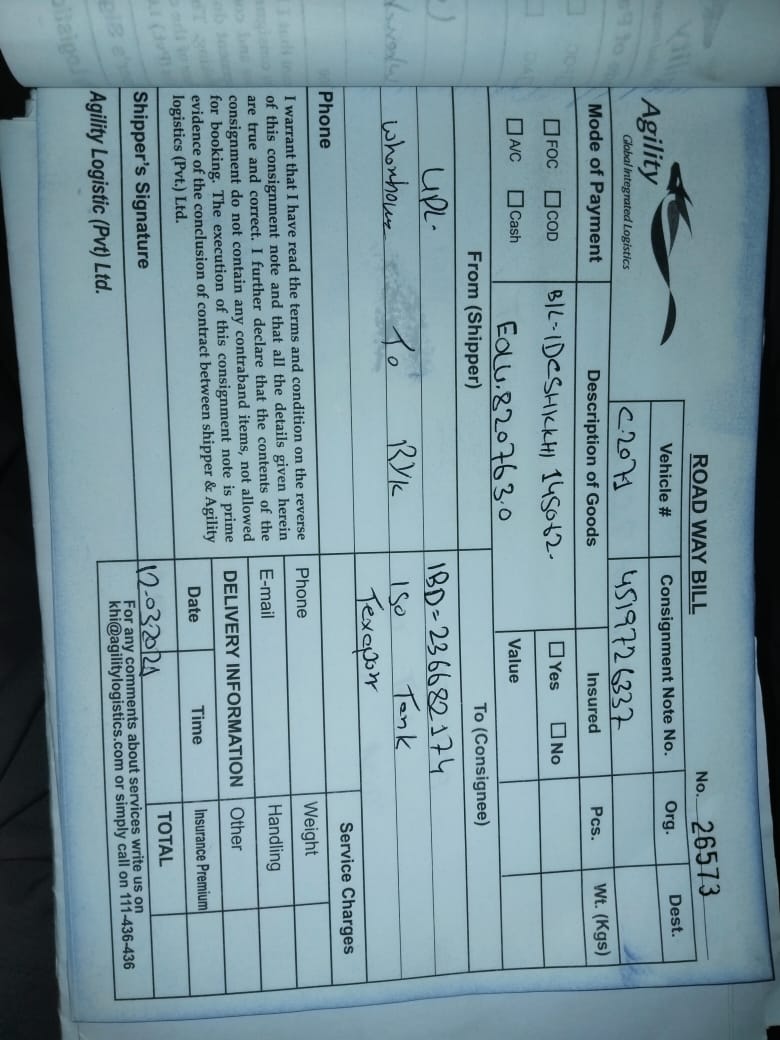 ROAD WAY BILL
No. 26573
Agility
Global Integrated Logistics
Vehicle # Consignment Note No. Org. Dest.
C.2071 4519726337
Mode of Payment Description of Goods Insured Pcs. Wt. (Kgs)
FOC COD B/L-IDCSHKKHI 145062. Yes No
A/C Cash EOLU.820763.0 Value
From (Shipper) To (Consignee)
UPL. IBD=236682174
To RYK ISO Tank
Phone
Service Charges
I warrant that I have read the terms and condition on the reverse
of this consignment note and that all the details given herein
are true and correct. I further declare that the contents of the
consignment do not contain any contraband items, not allowed
for booking. The execution of this consignment note is prime
evidence of the conclusion of contract between shipper & Agility
logistics (Pvt.) Ltd.
Phone Weight
E-mail Handling
DELIVERY INFORMATION Other
Date Time Insurance Premium
12-03-2021 TOTAL
Shipper's Signature
For any comments about services write us on
khi@agilitylogistics.com or simply call on 111-436-436
Agility Logistic (Pvt) Ltd.